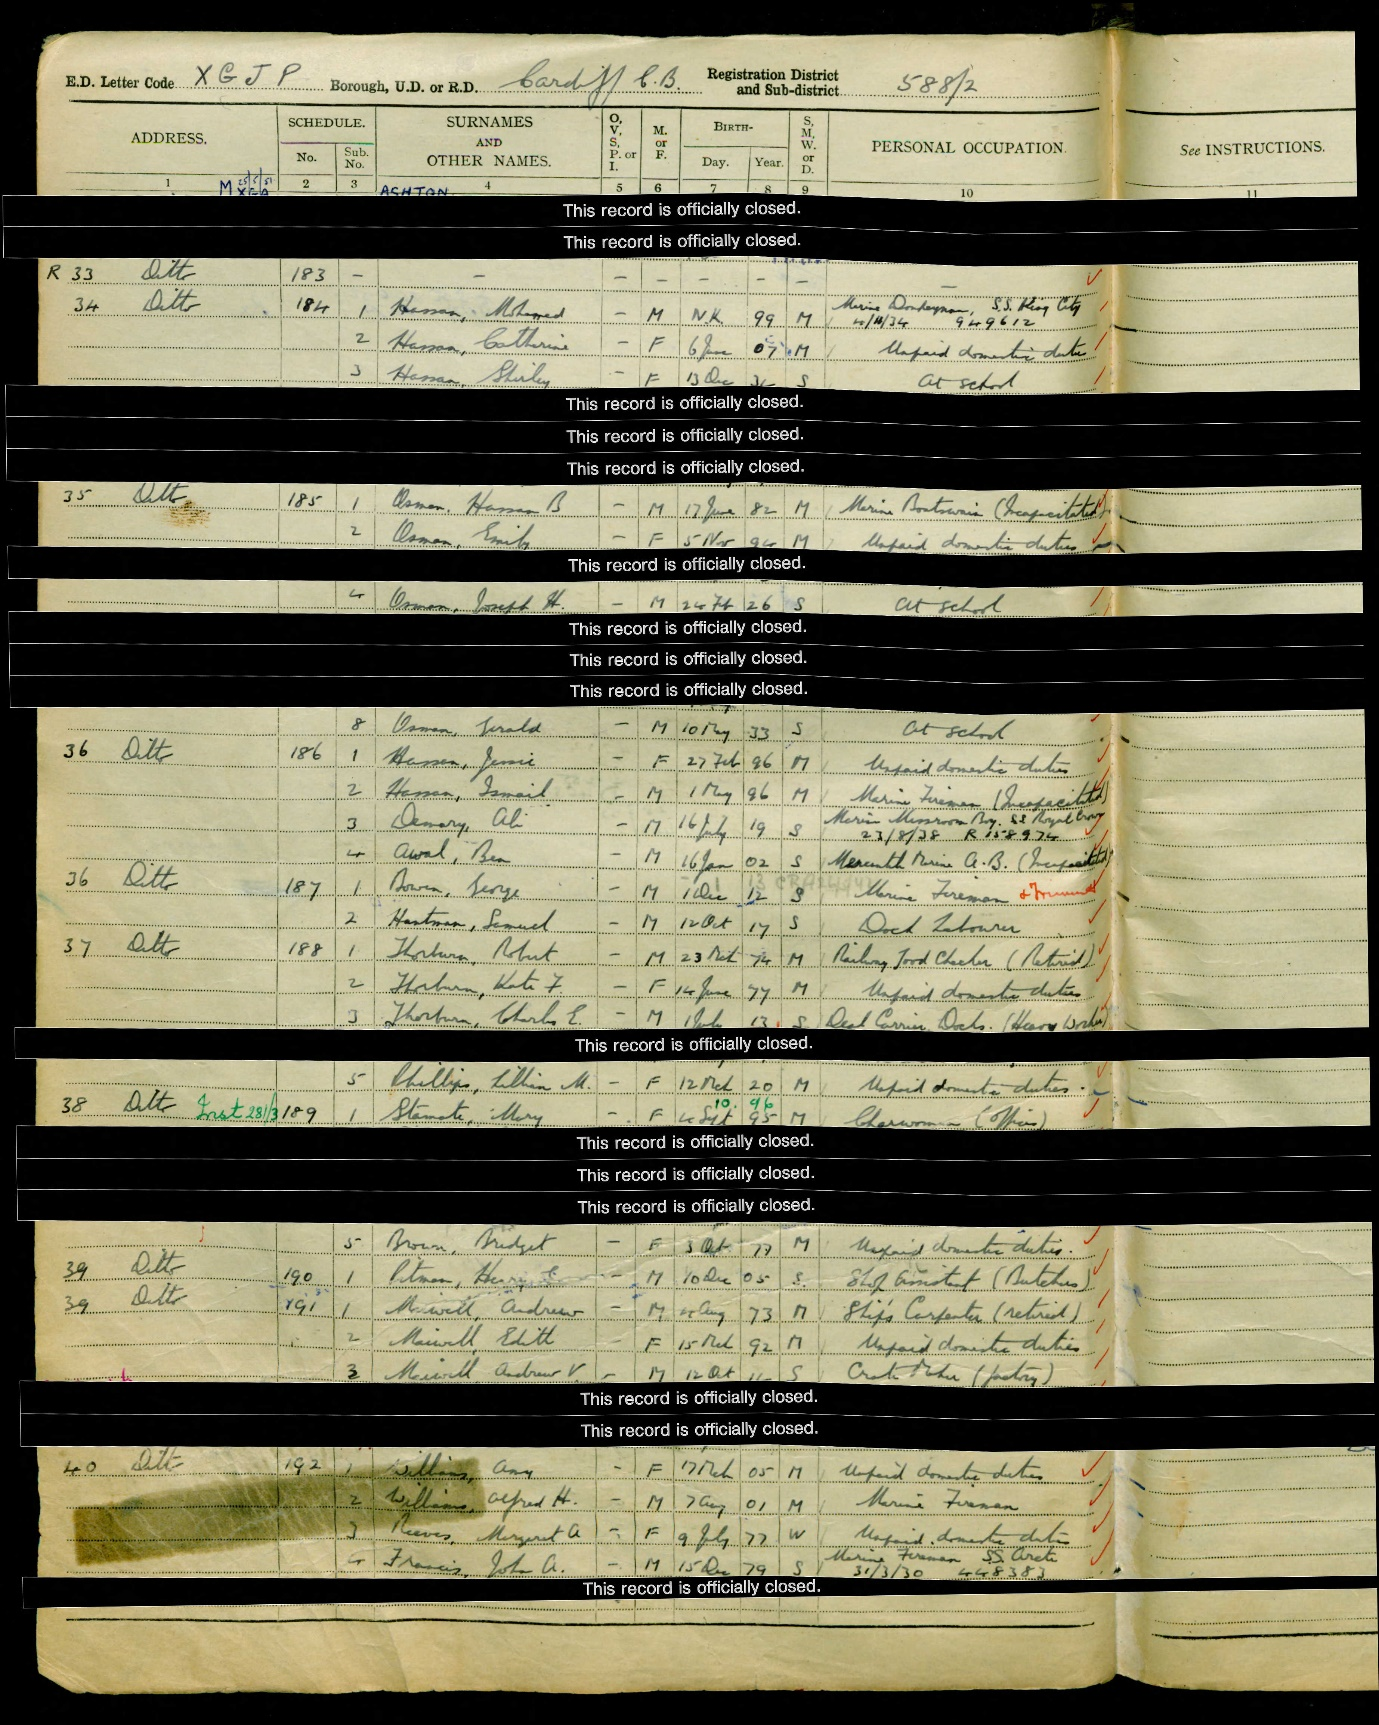 E.D. Letter Code X G J P Borough, U.D. or R.D. Cardiff C.B. Registration District and Sub-district 588/2
ADDRESS. SCHEDULE. No. Sub. No. SURNAMES AND OTHER NAMES. O, V, S, P. or I. M. or F. BIRTH- Day. Year. S, M, W. or D. PERSONAL OCCUPATION. See INSTRUCTIONS.
1 2 3 4 5 6 7 8 9 10 11
M 25/5/51 ASHTON
This record is officially closed.
This record is officially closed.
R 33 Ditto 183 - - - - - - - -
34 Ditto 184 1 Hassan, Mohamed - M N.K. 99 M Marine Donkeyman, S.S. King City
4/11/34 949612
2 Hassan, Catherine - F 6 June 07 M Unpaid domestic duties
3 Hassan, Shirley - F 13 Dec 34 S At school
This record is officially closed.
This record is officially closed.
This record is officially closed.
35 Ditto 185 1 Osman, Hassan B - M 17 June 82 M Marine Boatswain (Incapacitated)
2 Osman, Emily - F 5 Nov 94 M Unpaid domestic duties
This record is officially closed.
4 Osman, Joseph H. - M 24 Fb 26 S At school
This record is officially closed.
This record is officially closed.
This record is officially closed.
8 Osman, Gerald - M 10 May 33 S At school
36 Ditto 186 1 Hassan, Jessie - F 27 Feb 96 M Unpaid domestic duties
2 Hassan, Ismail - M 1 May 96 M Marine Fireman (Incapacitated)
3 Ali - M 16 July 19 S Marine Messroom Boy. SS Royal Crown
23/8/38 R 158974
4 Awal, Ben - M 16 Jan 02 S Mercantile Marine A.B. (Incapacitated)
36 Ditto 187 1 Bowen, George - M 1 Dec 12 S Marine Fireman & Trimmer
2 Hartman, Samuel - M 12 Oct 17 S Dock Labourer
37 Ditto 188 1 Thorburn, Robert - M 23 Mch 74 M Railway Food Checker (Retired)
2 Thorburn, Kate F. - F 14 June 77 M Unpaid domestic duties
3 Thorburn, Charles E. - M 1 July 13 S Deal Carrier Docks. (Heavy Worker)
This record is officially closed.
5 Phillips, Lillian M. - F 12 Mch 20 M Unpaid domestic duties.
10 96
38 Ditto Inst 281/3 189 1 Stamate, Mary - F 4 Sept 95 M Charwoman (Offices)
This record is officially closed.
This record is officially closed.
This record is officially closed.
5 Brown, Bridget - F 3 Oct 77 M Unpaid domestic duties.
39 Ditto 190 1 Pitman, Henry - M 10 Dec 05 S. Shop Assistant (Butchers)
39 Ditto 191 1 Maxwell, Andrew - M 4 Aug 73 M Ship's Carpenter (retired)
2 Maxwell, Edith F 15 Mch 92 M Unpaid domestic duties
3 Maxwell, Andrew V. - M 12 Oct S Crate Maker (factory)
This record is officially closed.
This record is officially closed.
40 Ditto 192 1 Williams, Amy - F 17 Mch 05 M Unpaid domestic duties
2 Williams, Alfred H. - M 7 Aug 01 M Marine Fireman
3 Reeves, Margaret A - F 9 July 77 W Unpaid domestic duties
4 Francis, John A. - M 15 Dec 79 S Marine Fireman SS
31/3/30 448383
This record is officially closed.